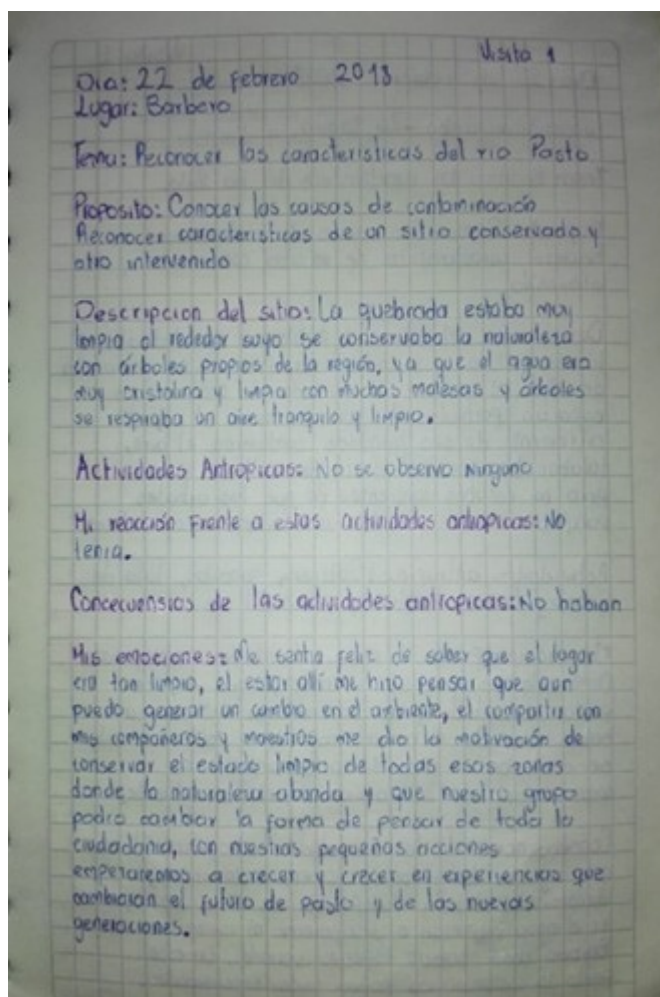 Visita 1
Dia: 22 de febrero 2018
Lugar: Barbero
Tema: Reconocer las caracteristicas del rio Pasto
Proposito: Conocer las causas de contaminación
Reconocer caracteristicas de un sitio conservado y
otro intervenido
Descripcion del sitio: La quebrada estaba muy
limpia al rededor suyo se conservaba la naturaleza
con árboles propios de la región, ya que el agua era
muy cristalina y limpia con muchas malesas y árboles
se respiraba un aire tranquilo y limpio.
Actividades Antropicas: No se observo ninguna
Mi reacción Frente a estas actividades antropicas: No
tenia.
Concecuensias de las actividades antropicas: No habian
Mis emociones: Me sentia feliz de saber que el lugar
era tan limpio, el estar allí me hizo pensar que aun
puedo generar un cambio en el ambiente, el compartir con
mis compañeros y maestros me dio la motivación de
conservar el estado limpio de todas esas zonas
donde la naturaleza abunda y que nuestro grupo
podra cambiar la forma de pensar de toda la
ciudadania, con nuestras pequeñas acciones
empezaremos a crecer y crecer en experiencias que
cambiaran el futuro de pasto y de las nuevas
generaciones.